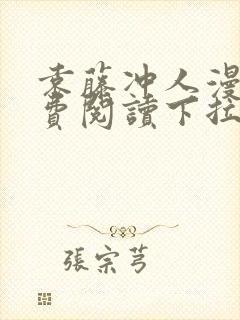 袁藤冲人漫
費閱讀下拉
張宗芎